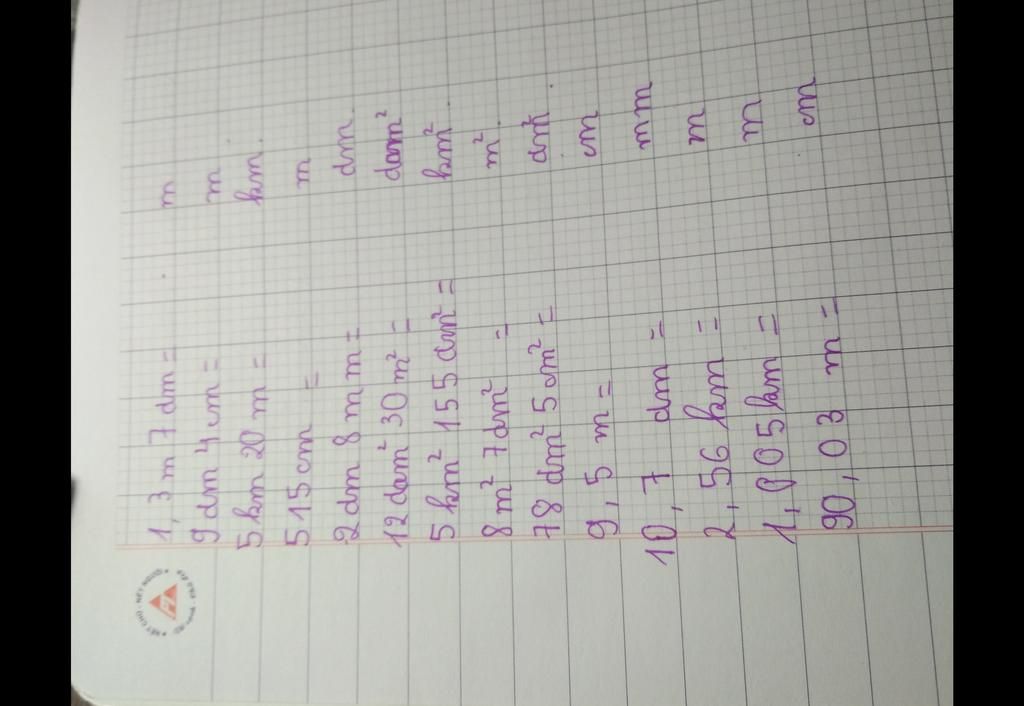 1, 3 m 7 dm = m
9 dm 4 cm = m
5 km 20 m = km.
515 cm = m
2 dm 8 m m = dm.
12 dam² 30 m² = dam²
5 km² 155 dm² = km².
8 m² 7 dm² = m².
78 dm² 5 cm² = dm².
9, 5 m = cm
10, 7 dm = mm
2, 56 km = m
1, 005 km = m
90, 03 m = cm